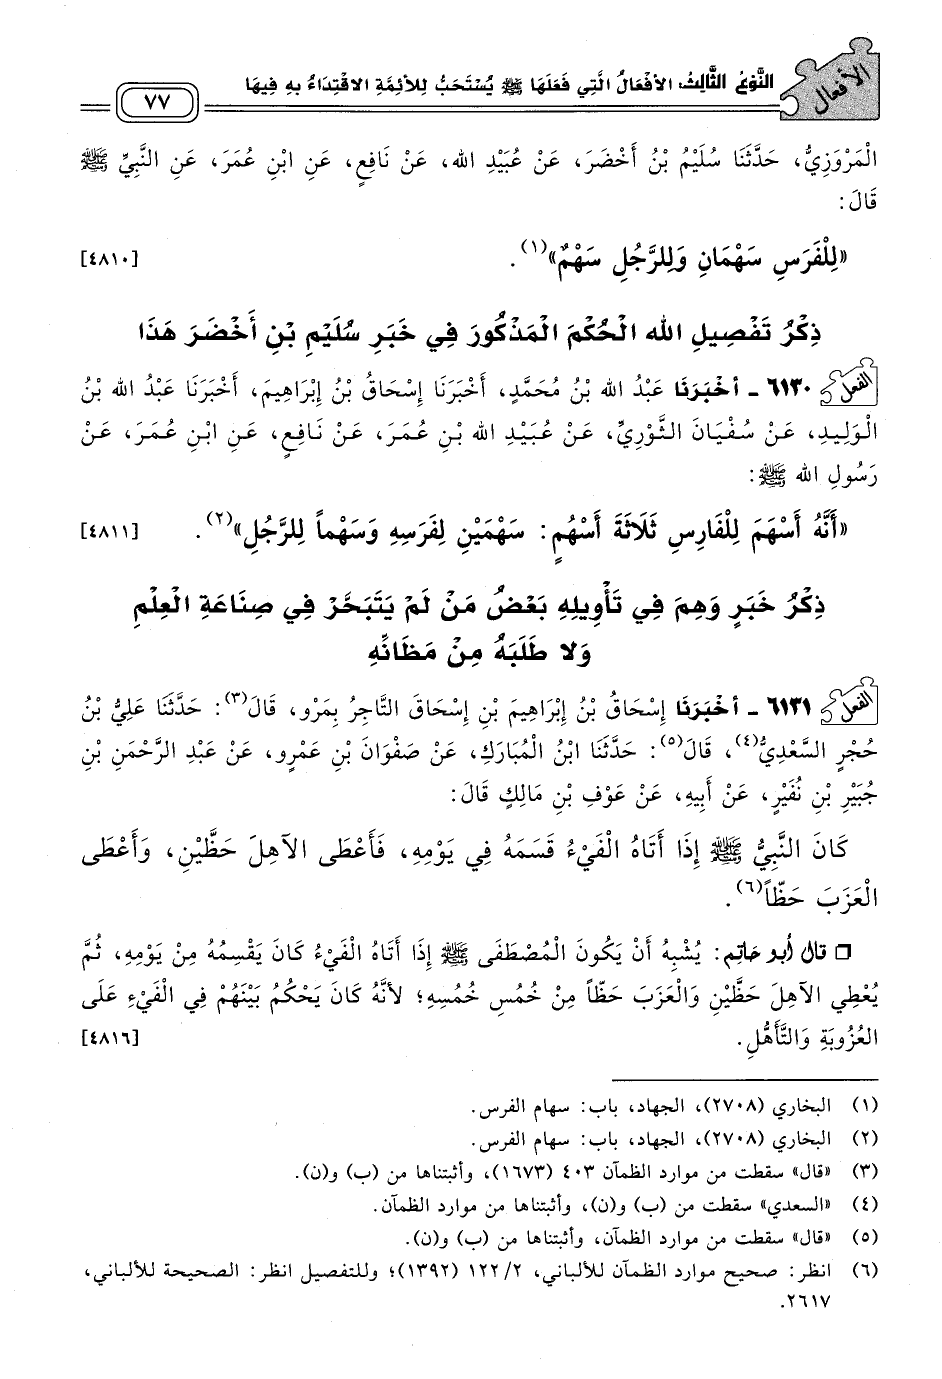 الأفعال
النَّوْعُ الثَّالِثُ: الأَفْعَالُ الَّتِي فَعَلَهَا ﷺ يُسْتَحَبُّ لِلأَئِمَّةِ الاقْتِدَاءُ بِهِ فِيهَا
٧٧
الْمَرْوَزِيُّ، حَدَّثَنَا سُلَيْمُ بْنُ أَخْضَرَ، عَنْ عُبَيْدِ الله، عَنْ نَافِعٍ، عَنِ ابْنِ عُمَرَ، عَنِ النَّبِيِّ ﷺ
قَالَ:
«لِلْفَرَسِ سَهْمَانِ وَلِلرَّجُلِ سَهْمٌ»(١). [٤٨١٠]
ذِكْرُ تَفْصِيلِ الله الْحُكْمَ الْمَذْكُورَ فِي خَبَرِ سُلَيْمِ بْنِ أَخْضَرَ هَذَا
الفعل ٦١٣٠ - أخْبَرَنَا عَبْدُ الله بْنُ مُحَمَّدٍ، أَخْبَرَنَا إِسْحَاقُ بْنُ إِبْرَاهِيمَ، أَخْبَرَنَا عَبْدُ الله بْنُ
الْوَلِيدِ، عَنْ سُفْيَانَ الثَّوْرِيِّ، عَنْ عُبَيْدِ الله بْنِ عُمَرَ، عَنْ نَافِعٍ، عَنِ ابْنِ عُمَرَ، عَنْ
رَسُولِ الله ﷺ:
«أَنَّهُ أَسْهَمَ لِلْفَارِسِ ثَلَاثَةَ أَسْهُمٍ: سَهْمَيْنِ لِفَرَسِهِ وَسَهْماً لِلرَّجُلِ»(٢). [٤٨١١]
ذِكْرُ خَبَرٍ وَهِمَ فِي تَأْوِيلِهِ بَعْضُ مَنْ لَمْ يَتَبَحَّرْ فِي صِنَاعَةِ الْعِلْمِ
وَلا طَلَبَهُ مِنْ مَظَانِّهِ
الفعل ٦١٣١ - أخْبَرَنَا إِسْحَاقُ بْنُ إِبْرَاهِيمَ بْنِ إِسْحَاقَ التَّاجِرُ بِمَرْو، قَالَ(٣): حَدَّثَنَا عَلِيُّ بْنُ
حُجْرٍ السَّعْدِيُّ(٤)، قَالَ(٥): حَدَّثَنَا ابْنُ الْمُبَارَكِ، عَنْ صَفْوَانَ بْنِ عَمْرٍو، عَنْ عَبْدِ الرَّحْمَنِ بْنِ
جُبَيْرِ بْنِ نُفَيْرٍ، عَنْ أَبِيهِ، عَنْ عَوْفِ بْنِ مَالِكٍ قَالَ:
كَانَ النَّبِيُّ ﷺ إِذَا أَتَاهُ الْفَيْءُ قَسَمَهُ فِي يَوْمِهِ، فَأَعْطَى الآهِلَ حَظَّيْنِ، وَأَعْطَى
الْعَزَبَ حَظّاً(٦).
❑ قال أبو حاتِم: يُشْبِهُ أَنْ يَكُونَ الْمُصْطَفَى ﷺ إِذَا أَتَاهُ الْفَيْءُ كَانَ يَقْسِمُهُ مِنْ يَوْمِهِ، ثُمَّ
يُعْطِي الآهِلَ حَظَّيْنِ وَالْعَزَبَ حَظّاً مِنْ خُمُسِ خُمُسِهِ؛ لأَنَّهُ كَانَ يَحْكُمُ بَيْنَهُمْ فِي الْفَيْءِ عَلَى
الْعُزُوبَةِ وَالتَّأَهُّلِ. [٤٨١٦]
(١) البخاري (٢٧٠٨)، الجهاد، باب: سهام الفرس.
(٢) البخاري (٢٧٠٨)، الجهاد، باب: سهام الفرس.
(٣) «قال» سقطت من موارد الظمآن ٤٠٣ (١٦٧٣)، وأثبتناها من (ب) و(ن).
(٤) «السعدي» سقطت من (ب) و(ن)، وأثبتناها من موارد الظمآن.
(٥) «قال» سقطت من موارد الظمآن، وأثبتناها من (ب) و(ن).
(٦) انظر: صحيح موارد الظمآن للألباني، ١٢٢/٢ (١٣٩٢)؛ وللتفصيل انظر: الصحيحة للألباني،
٢٦١٧.